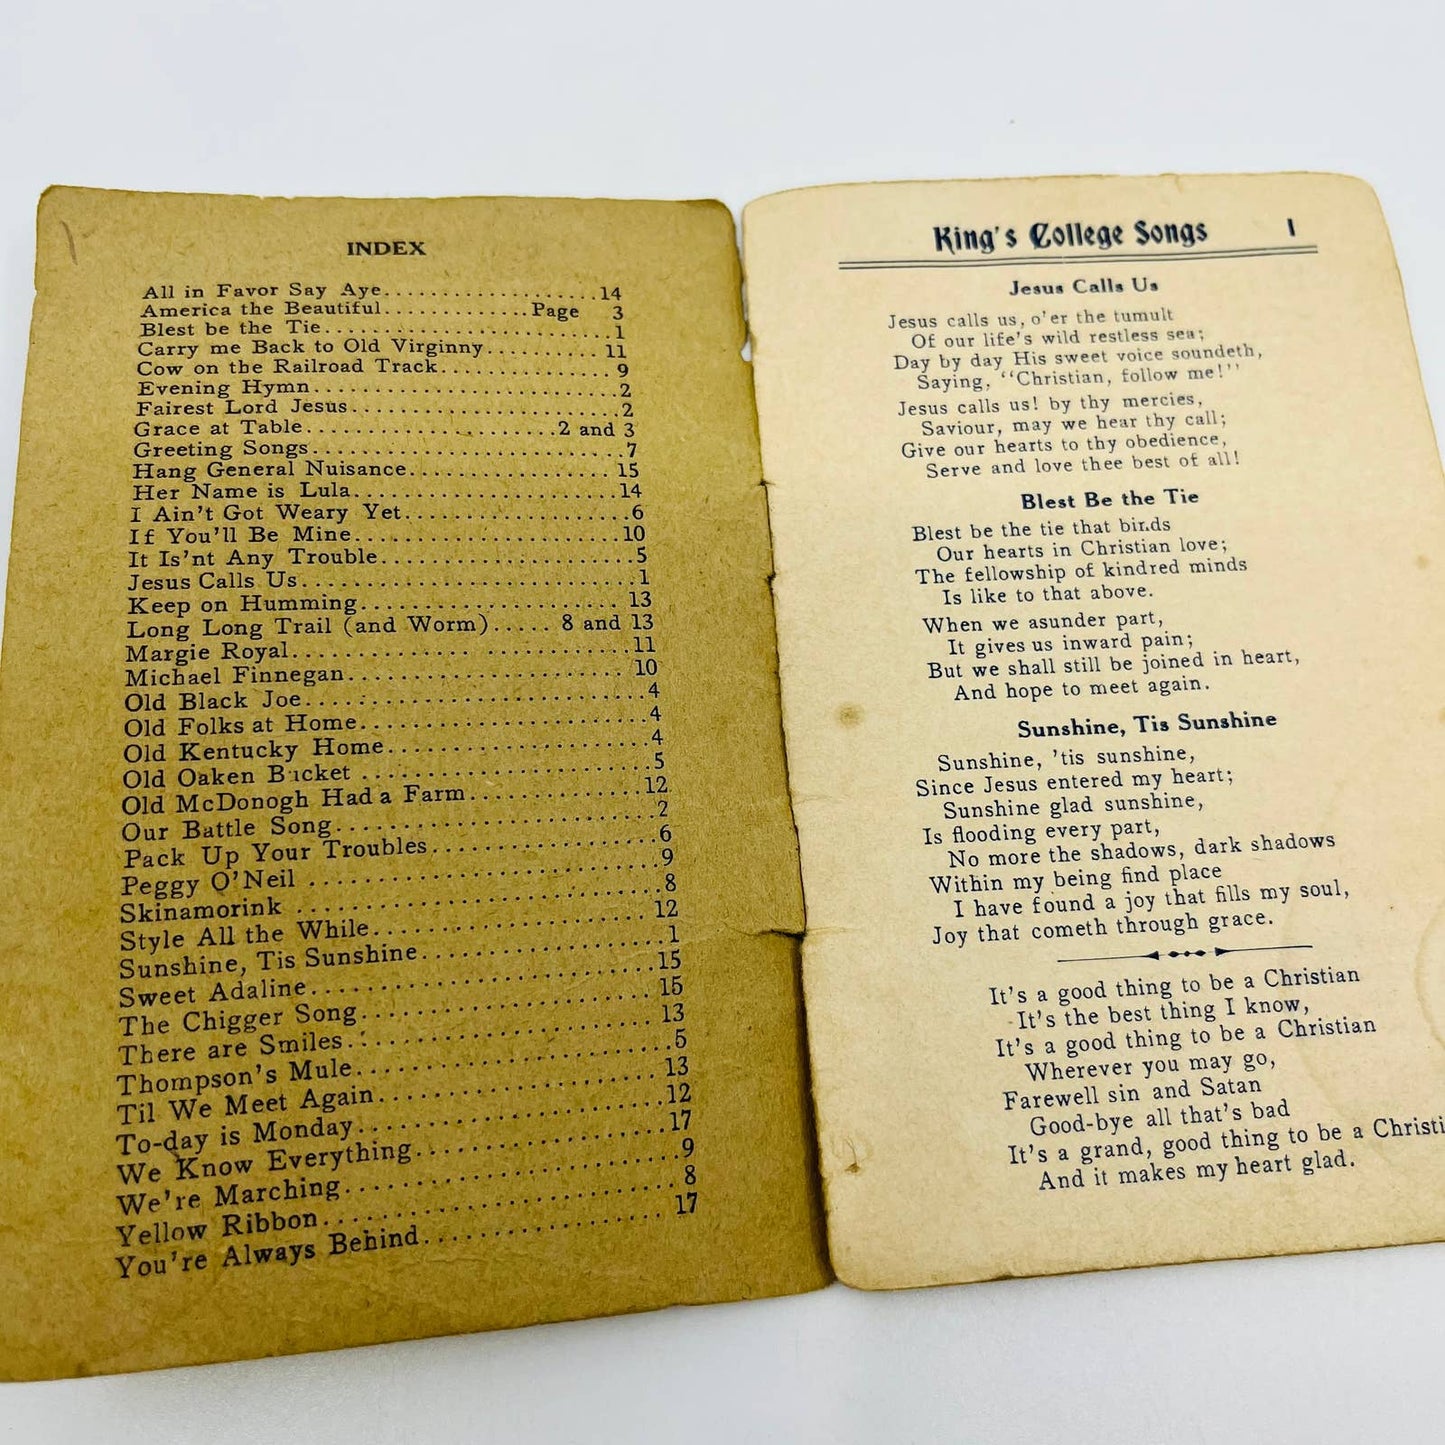 INDEX
All in Favor Say Aye....................14
America the Beautiful.............Page 3
Blest be the Tie...........................1
Carry me Back to Old Virginny..........11
Cow on the Railroad Track................9
Evening Hymn............................2
Fairest Lord Jesus........................2
Grace at Table.......................2 and 3
Greeting Songs............................7
Hang General Nuisance..................15
Her Name is Lula.......................14
I Ain't Got Weary Yet....................6
If You'll Be Mine.......................10
It Is'nt Any Trouble.......................5
Jesus Calls Us..............................1
Keep on Humming...................... 13
Long Long Trail (and Worm)..... 8 and 13
Margie Royal............................11
Michael Finnegan........................10
Old Black Joe............................4
Old Folks at Home........................4
Old Kentucky Home......................4
Old Oaken Bucket .......................5
Old McDonogh Had a Farm..............12
Our Battle Song..........................2
Pack Up Your Troubles...................6
Peggy O'Neil ............................9
Skinamorink ............................8
Style All the While.......................12
Sunshine, Tis Sunshine...................1
Sweet Adaline...........................15
The Chigger Song........................15
There are Smiles.........................13
Thompson's Mule........................5
Til We Meet Again.......................13
To-day is Monday........................12
We Know Everything....................17
We're Marching..........................9
Yellow Ribbon...........................8
You're Always Behind...................17
King's College Songs 1
Jesus Calls Us
Jesus calls us, o'er the tumult
Of our life's wild restless sea;
Day by day His sweet voice soundeth,
Saying, "Christian, follow me!"
Jesus calls us! by thy mercies,
Saviour, may we hear thy call;
Give our hearts to thy obedience,
Serve and love thee best of all!
Blest Be the Tie
Blest be the tie that birds
Our hearts in Christian love;
The fellowship of kindred minds
Is like to that above.
When we asunder part,
It gives us inward pain;
But we shall still be joined in heart,
And hope to meet again.
Sunshine, Tis Sunshine
Sunshine, 'tis sunshine,
Since Jesus entered my heart;
Sunshine glad sunshine,
Is flooding every part,
No more the shadows, dark shadows
Within my being find place
I have found a joy that fills my soul,
Joy that cometh through grace.
It's a good thing to be a Christian
It's the best thing I know,
It's a good thing to be a Christian
Wherever you may go,
Farewell sin and Satan
Good-bye all that's bad
It's a grand, good thing to be a Christi
And it makes my heart glad.